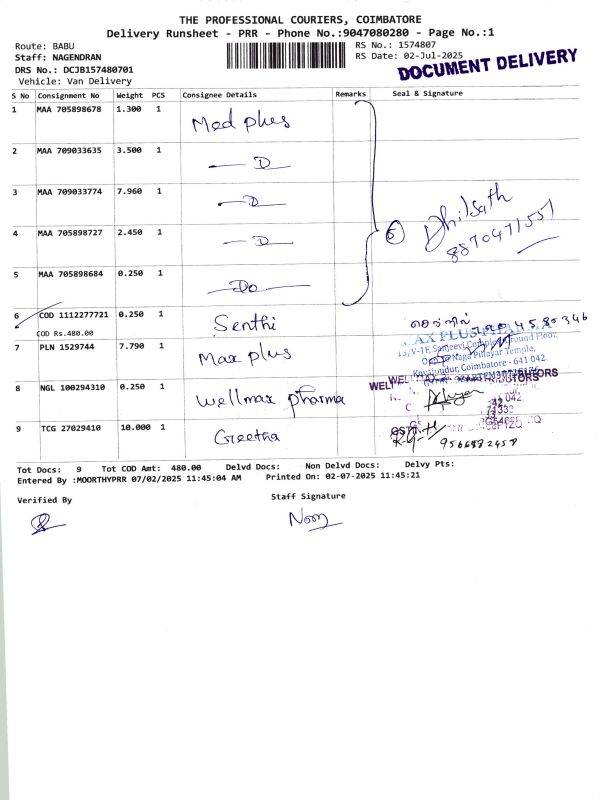 THE PROFESSIONAL COURIERS, COIMBATORE
Delivery Runsheet - PRR - Phone No.:9047080280 - Page No.:1
Route: BABU
Staff: NAGENDRAN
DRS No.: DCJB157480701
Vehicle: Van Delivery
RS No.: 1574807
RS Date: 02-Jul-2025
DOCUMENT DELIVERY
S No Consignment No Weight PCS Consignee Details Remarks Seal & Signature
1 MAA 705898678 1.300 1 Med plus
2 MAA 709033635 3.500 1 — D —
3 MAA 709033774 7.960 1 — D —
4 MAA 705898727 2.450 1 — D —
5 MAA 705898684 0.250 1 — Do —
5 Dhilsath
8870471551
6 COD 1112277721 0.250 1 Senthi
COD Rs.480.00
7 PLN 1529744 7.790 1 Max plus
MAX PLUS PHARMA
13/V-1F, Sanjeevi Complex, Ground Floor,
Opp. Naga Pillayar Temple,
Coimbatore - 641 042.
8 NGL 100294310 0.250 1 Wellmax pharma
9 TCG 27029410 10.000 1 Geetha
Tot Docs: 9 Tot COD Amt: 480.00 Delvd Docs: Non Delvd Docs: Delvy Pts:
Entered By :MOORTHYPRR 07/02/2025 11:45:04 AM Printed On: 02-07-2025 11:45:21
Verified By
Staff Signature